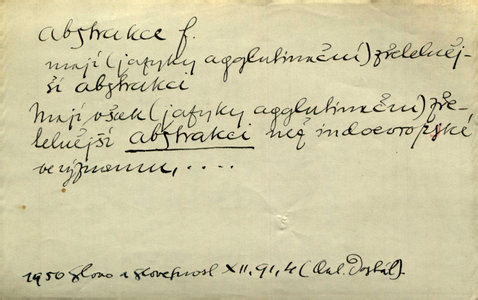 abstrakce f.
mají (jazyky agglutinační) zřetelněj-
ší abstrakci
Mají však (jazyky agglutinační) zře-
telnější abstrakci než indoevropské
ve významu, ....
1950 Slovo a slovesnost XII. 91, 4 (Ant. Dostál).